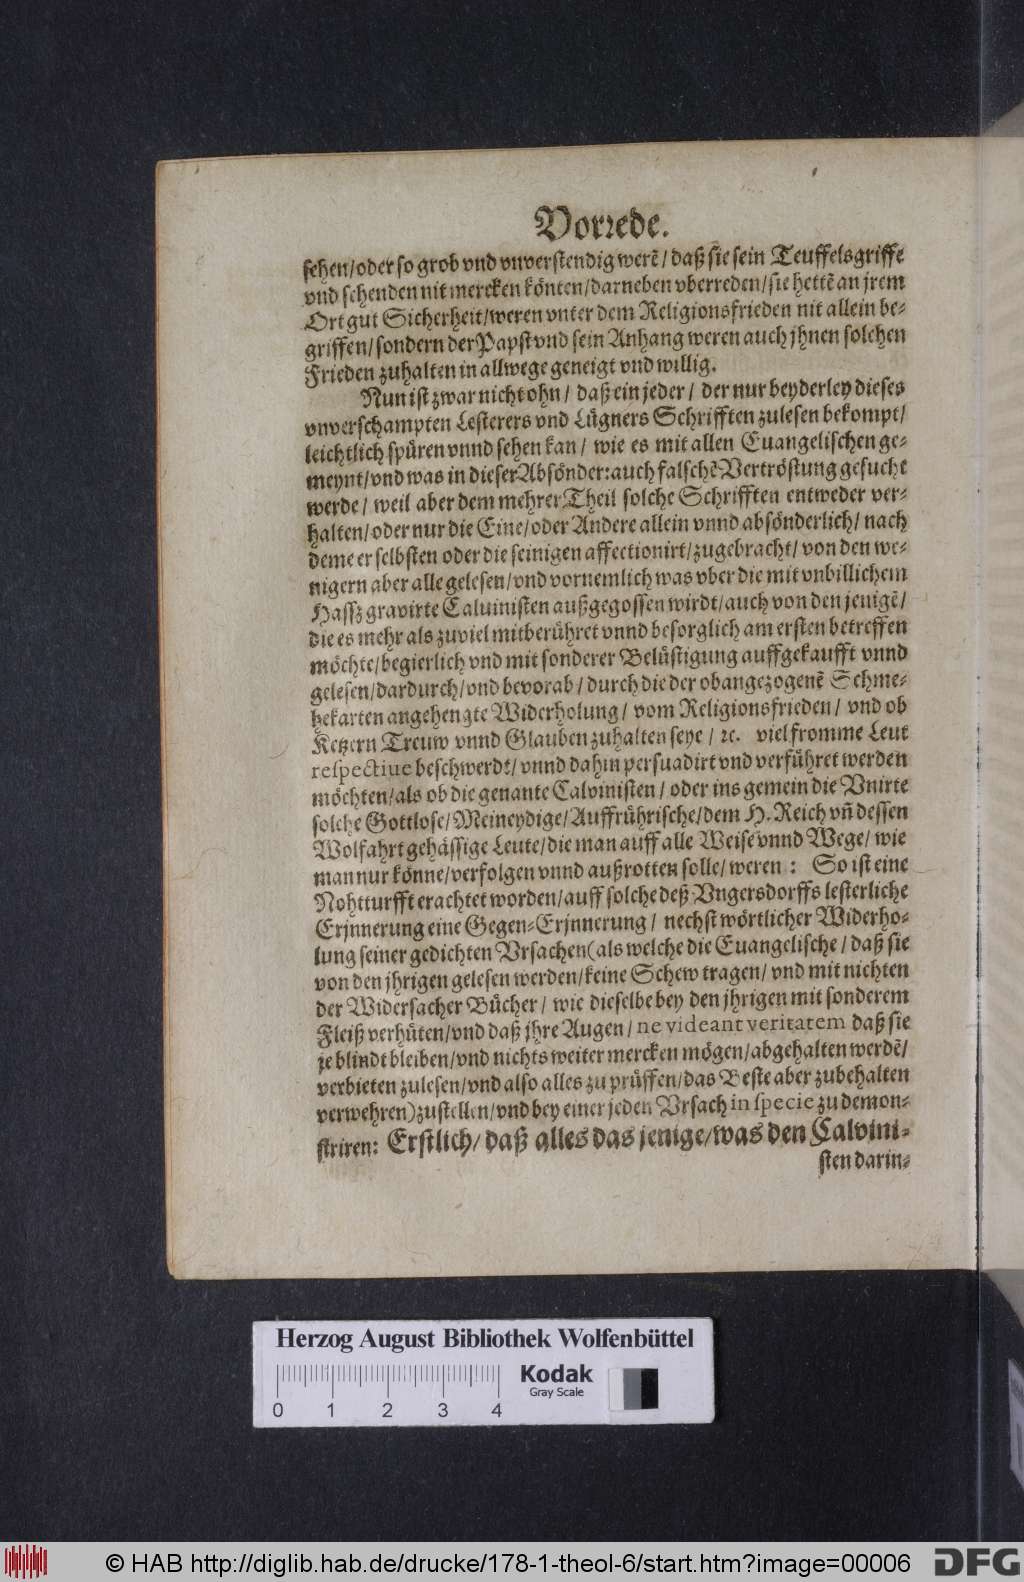 Vorrede.
sehen/oder so grob vnd vnverstendig werẽ/ daß sie sein Teuffelsgriffe
vnd sehenden nit mercken könten/darneben vberreden/sie hettẽ an jrem
Ort gut Sicherheit/weren vnter dem Religionsfrieden nit allein be-
griffen/sondern der Papst vnd sein Anhang weren auch jhnen solchen
Frieden zuhalten in allwege geneigt vnd willig.
Nun ist zwar nicht ohn/ daß ein jeder/ der nur beyderley dieses
vnverschampten Lesterers vnd Lügners Schrifften zulesen bekompt/
leichtlich spüren vnnd sehen kan/ wie es mit allen Euangelischen ge-
meynt/vnd was in dieser Absönder: auch falschẽ Vertröstung gesucht
werde/ weil aber dem mehrer Theil solche Schrifften entweder ver-
halten/oder nur die Eine/oder Andere allein vnnd absönderlich/ nach
deme er selbsten oder die seinigen affectionirt/zugebracht/ von den we-
nigern aber alle gelesen/vnd vornemlich was vber die mit vnbillichem
Hassz gravirte Caluinisten außgegossen wirdt/auch von den jenigẽ/
die es mehr als zuviel mitberühret vnnd besorglich am ersten betreffen
möchte/begierlich vnd mit sonderer Belüstigung auffgekaufft vnnd
gelesen/dardurch/vnd bevorab/ durch die der obangezogenẽ Schme-
hekarten angehengte Widerholung/ vom Religionsfrieden/ vnd ob
Ketzern Treuw vnnd Glauben zuhalten seye/ ꝛc. viel fromme Leut
respectiue beschwerdt/ vnnd dahin persuadirt vnd verführet werden
möchten/als ob die genante Calvinisten/ oder ins gemein die Vnirte
solche Gottlose/Meineydige/Auffrührische/dem H. Reich vñ dessen
Wolfahrt gehässige Leute/die man auff alle Weise vnnd Wege/ wie
man nur könne/verfolgen vnnd außrotten solle/weren: So ist eine
Nohtturfft erachtet worden/auff solche deß Vngersdorffs lesterliche
Erjnnerung eine Gegen-Erjnnerung/ nechst wörtlicher Widerho-
lung seiner gedichten Vrsachen (als welche die Euangelische/ daß sie
von den jhrigen gelesen werden/keine Schew tragen/ vnd mit nichten
der Widersacher Bücher/ wie dieselbe bey den jhrigen mit sonderem
Fleiß verhüten/vnd daß jhre Augen/ ne videant veritatem daß sie
je blindt bleiben/vnd nichts weiter mercken mögen/abgehalten werdẽ/
verbieten zulesen/vnd also alles zu prüffen/das Beste aber zubehalten
verwehren) zustellen/vnd bey einer jeden Vrsach in specie zu demon-
striren: Erstlich/ daß alles das jenige/was den Calvini-
sten darin-
Herzog August Bibliothek Wolfenbüttel
0 1 2 3 4
Kodak
Gray Scale
© HAB http://diglib.hab.de/drucke/178-1-theol-6/start.htm?image=00006
DFG